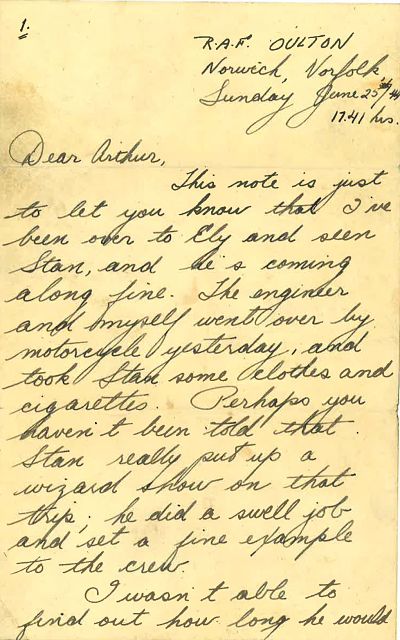 1.
R.A.F. OULTON
Norwich, Norfolk
Sunday June 25th/44
17.41 hrs.
Dear Arthur,
This note is just
to let you know that I've
been over to Ely and seen
Stan, and he's coming
along fine. The engineer
and myself went over by
motorcycle yesterday, and
took Stan some clothes and
cigarettes. Perhaps you
haven't been told that
Stan really put up a
wizard show on that
trip; he did a swell job
and set a fine example
to the crew.
I wasn't able to
find out how long he would